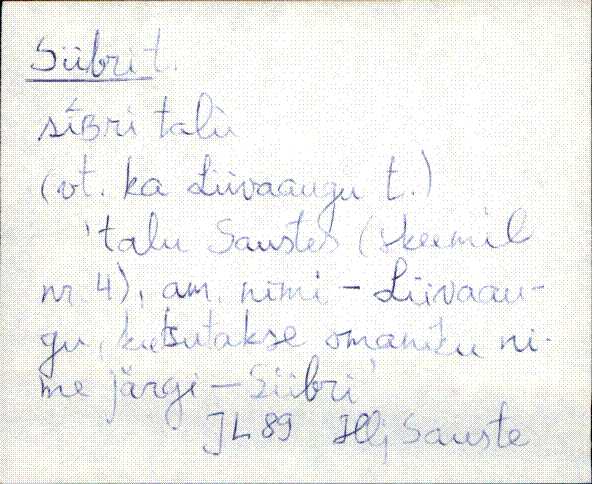 Siibri t.
síʙri talù
(vt. ka Liivaaugu t.)
'talu Saustes (skeemil
nr. 4), am. nimi - Liivaau-
gu, kutsutakse omaniku ni-
me järgi - Siibri'
JL 89 Hlj Sauste